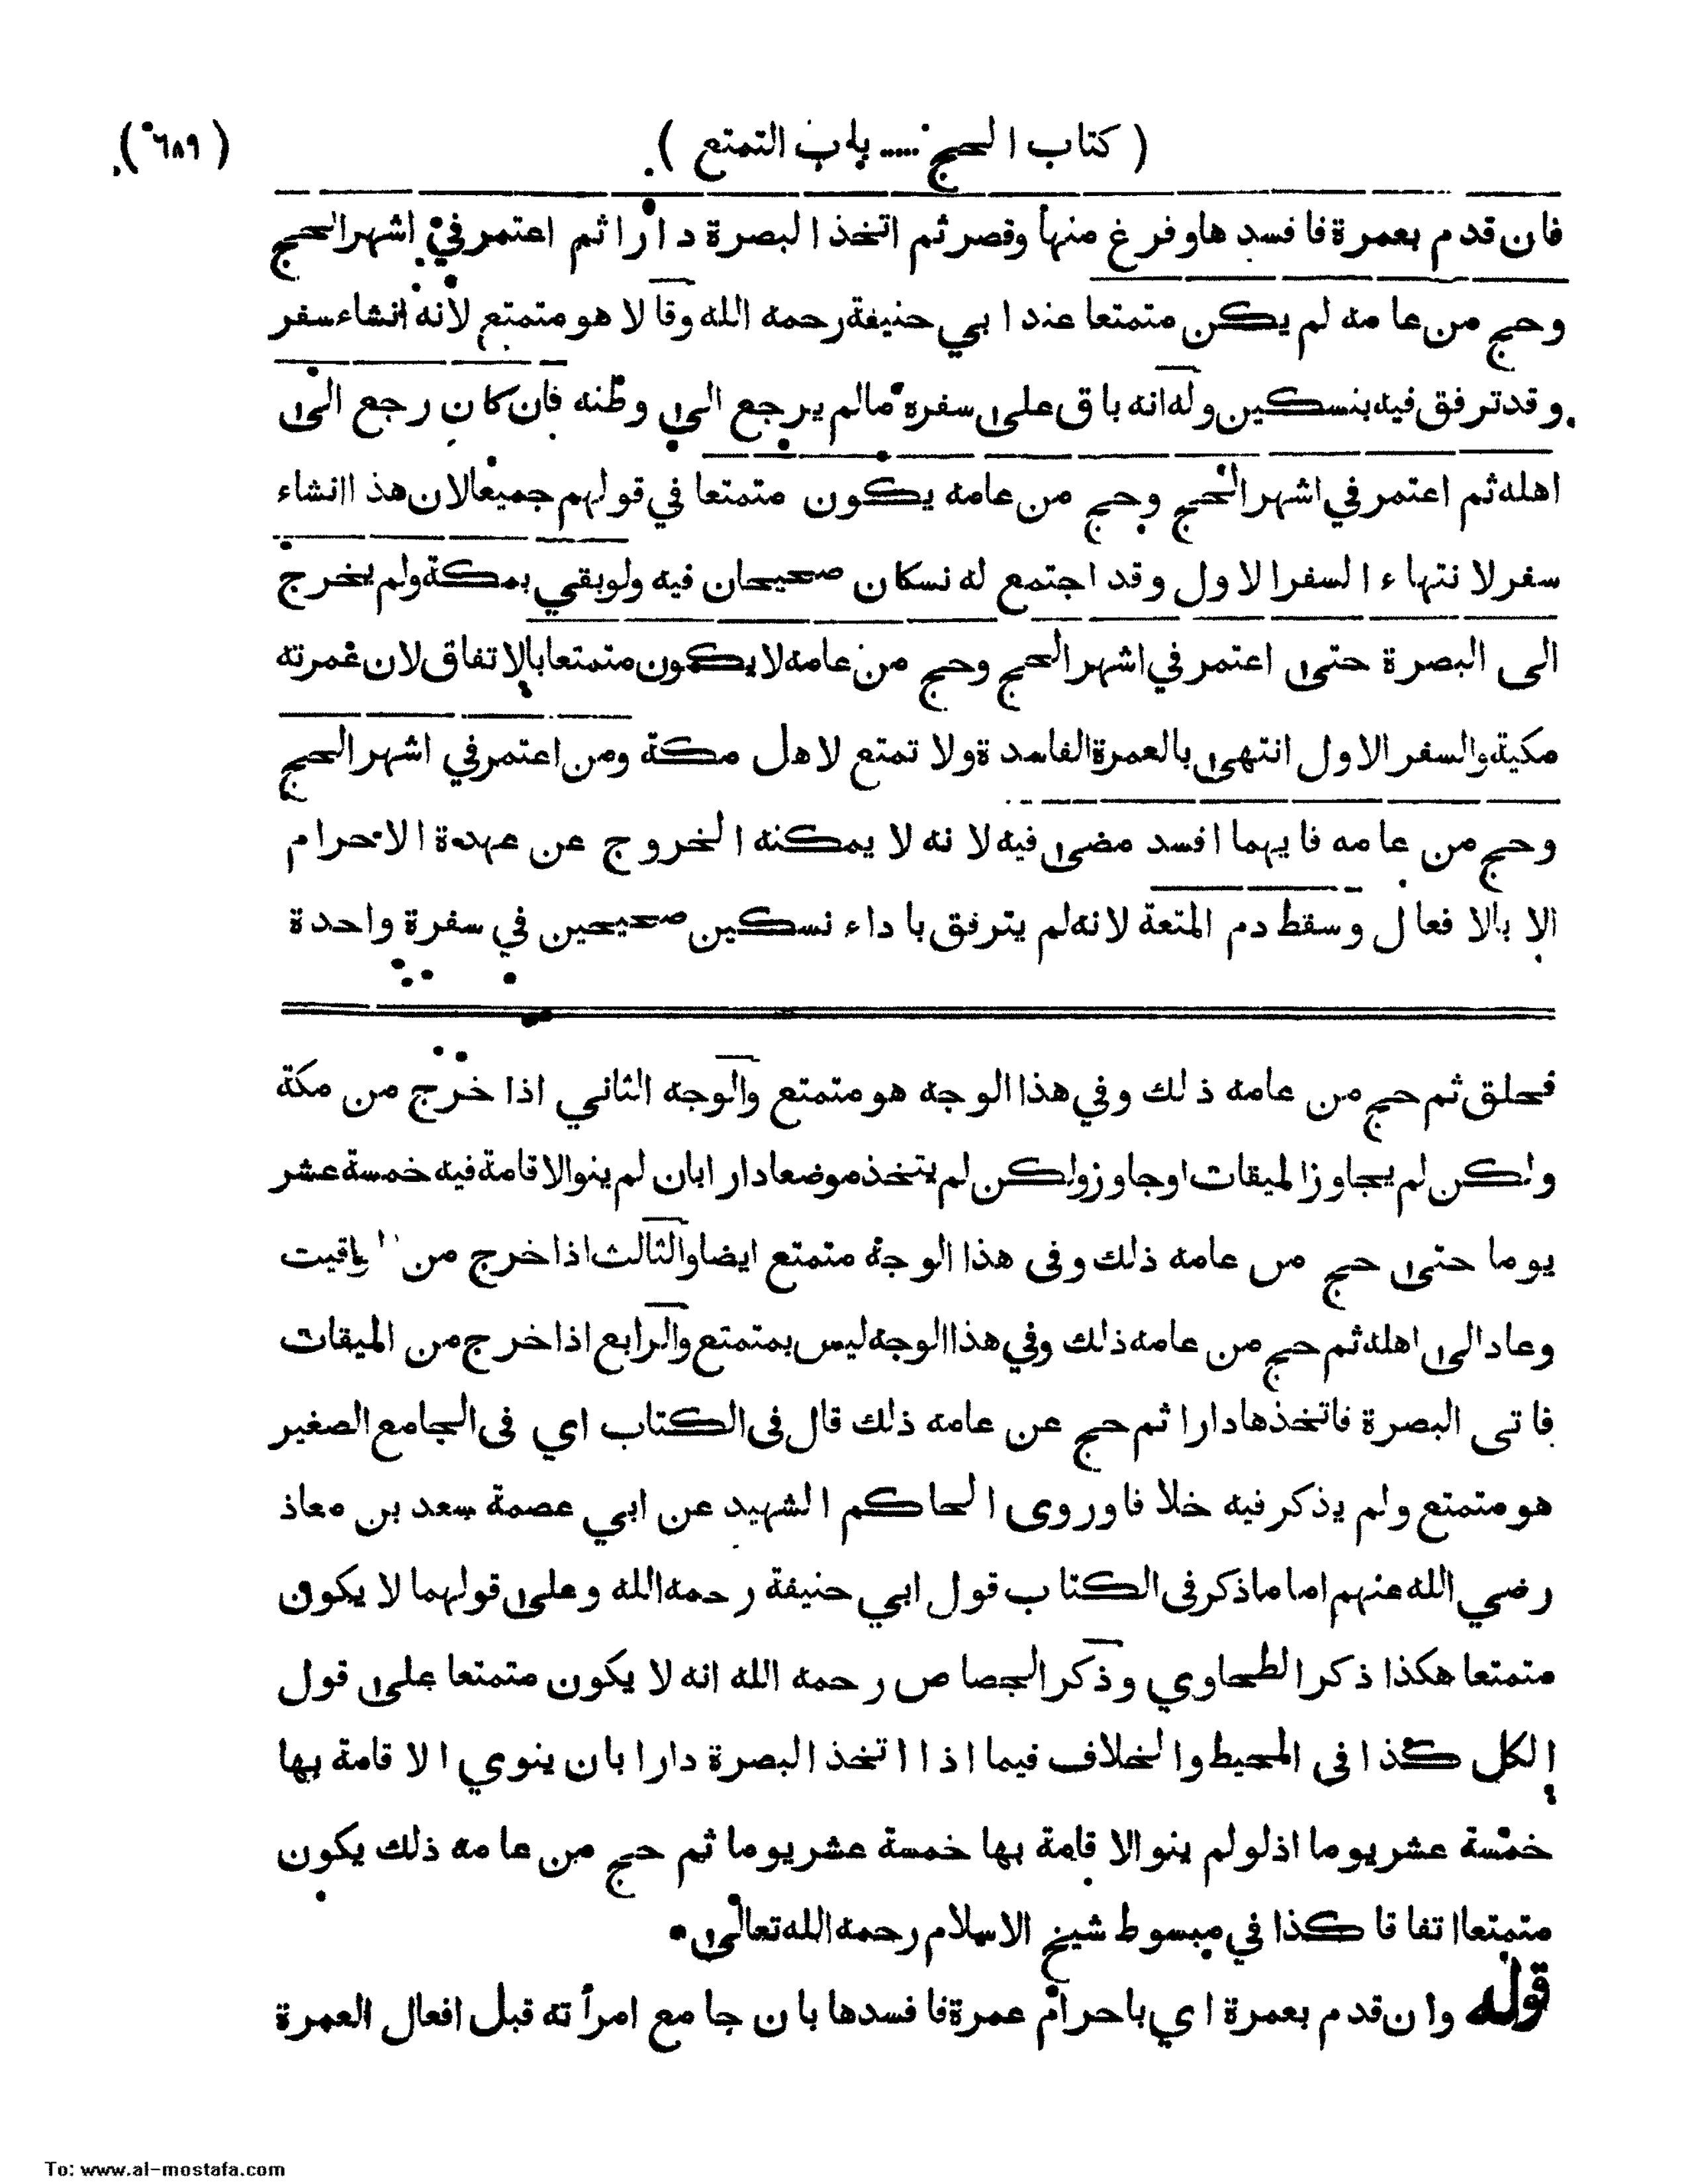 ( كتاب الحج ..... باب التمتع ) ( ٦٨٩ )
فان قدم بعمرة فافسدها وفرغ منها وقصر ثم اتخذ البصرة دارا ثم اعتمر في اشهر الحج
وحج من عامه لم يكن متمتعا عند ابي حنيفة رحمه الله وقالا هو متمتع لانه انشاء سفر
وقد ترفق فيه بنسكين وله انه باق على سفره مالم يرجع الى وطنه فان كان رجع الى
اهله ثم اعتمر في اشهر الحج وحج من عامه يكون متمتعا في قولهم جميعا لان هذا انشاء
سفر لانتهاء السفر الاول وقد اجتمع له نسكان صحيحان فيه ولو بقي بمكة ولم يخرج
الى البصرة حتى اعتمر في اشهر الحج وحج من عامه لا يكون متمتعا بالاتفاق لان عمرته
مكية والسفر الاول انتهى بالعمرة الفاسدة ولا تمتع لاهل مكة ومن اعتمر في اشهر الحج
وحج من عامه فايهما افسد مضى فيه لانه لا يمكنه الخروج عن عهدة الاحرام
الا بالافعال وسقط دم المتعة لانه لم يترفق باداء نسكين صحيحين في سفرة واحدة
فحلق ثم حج من عامه ذلك وفي هذا الوجه هو متمتع والوجه الثاني اذا خرج من مكة
ولكن لم يجاوز الميقات او جاوز ولكن لم يتخذ موضعا دارا بان لم ينو الاقامة فيه خمسة عشر
يوما حتى حج من عامه ذلك وفى هذا الوجه متمتع ايضا والثالث اذا خرج من
وعاد الى اهله ثم حج من عامه ذلك وفي هذا الوجه ليس بمتمتع والرابع اذا خرج من الميقات
فاتى البصرة فاتخذها دارا ثم حج عن عامه ذلك قال فى الكتاب اي فى الجامع الصغير
هو متمتع ولم يذكر فيه خلافا وروى الحاكم الشهيد عن ابي عصمة سعد بن معاذ
رضي الله عنهم اما ما ذكر فى الكتاب قول ابي حنيفة رحمه الله وعلى قولهما لا يكون
متمتعا هكذا ذكر الطحاوي وذكر الجصاص رحمه الله انه لا يكون متمتعا على قول
الكل كذا فى المحيط والخلاف فيما اذا اتخذ البصرة دارا بان ينوي الاقامة بها
خمسة عشر يوما اذ لو لم ينو الاقامة بها خمسة عشر يوما ثم حج من عامه ذلك يكون
متمتعا اتفاقا كذا في مبسوط شيخ الاسلام رحمه الله تعالى •
قوله وان قدم بعمرة اي باحرام عمرة فافسدها بان جامع امرأته قبل افعال العمرة
To: www.al-mostafa.com